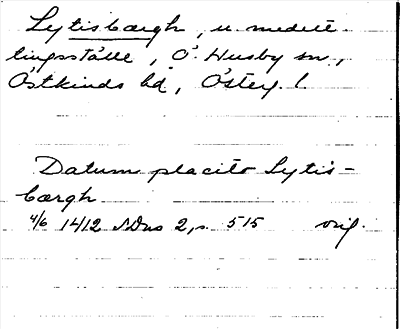 Lytisbærgh, u. medelt
tingsställe, Ö. Husby sn,
Östkinds hd, Österg. l.
Datum placito Lytis-
bærgh
4/6 1412 SDns 2, s. 515 orig.